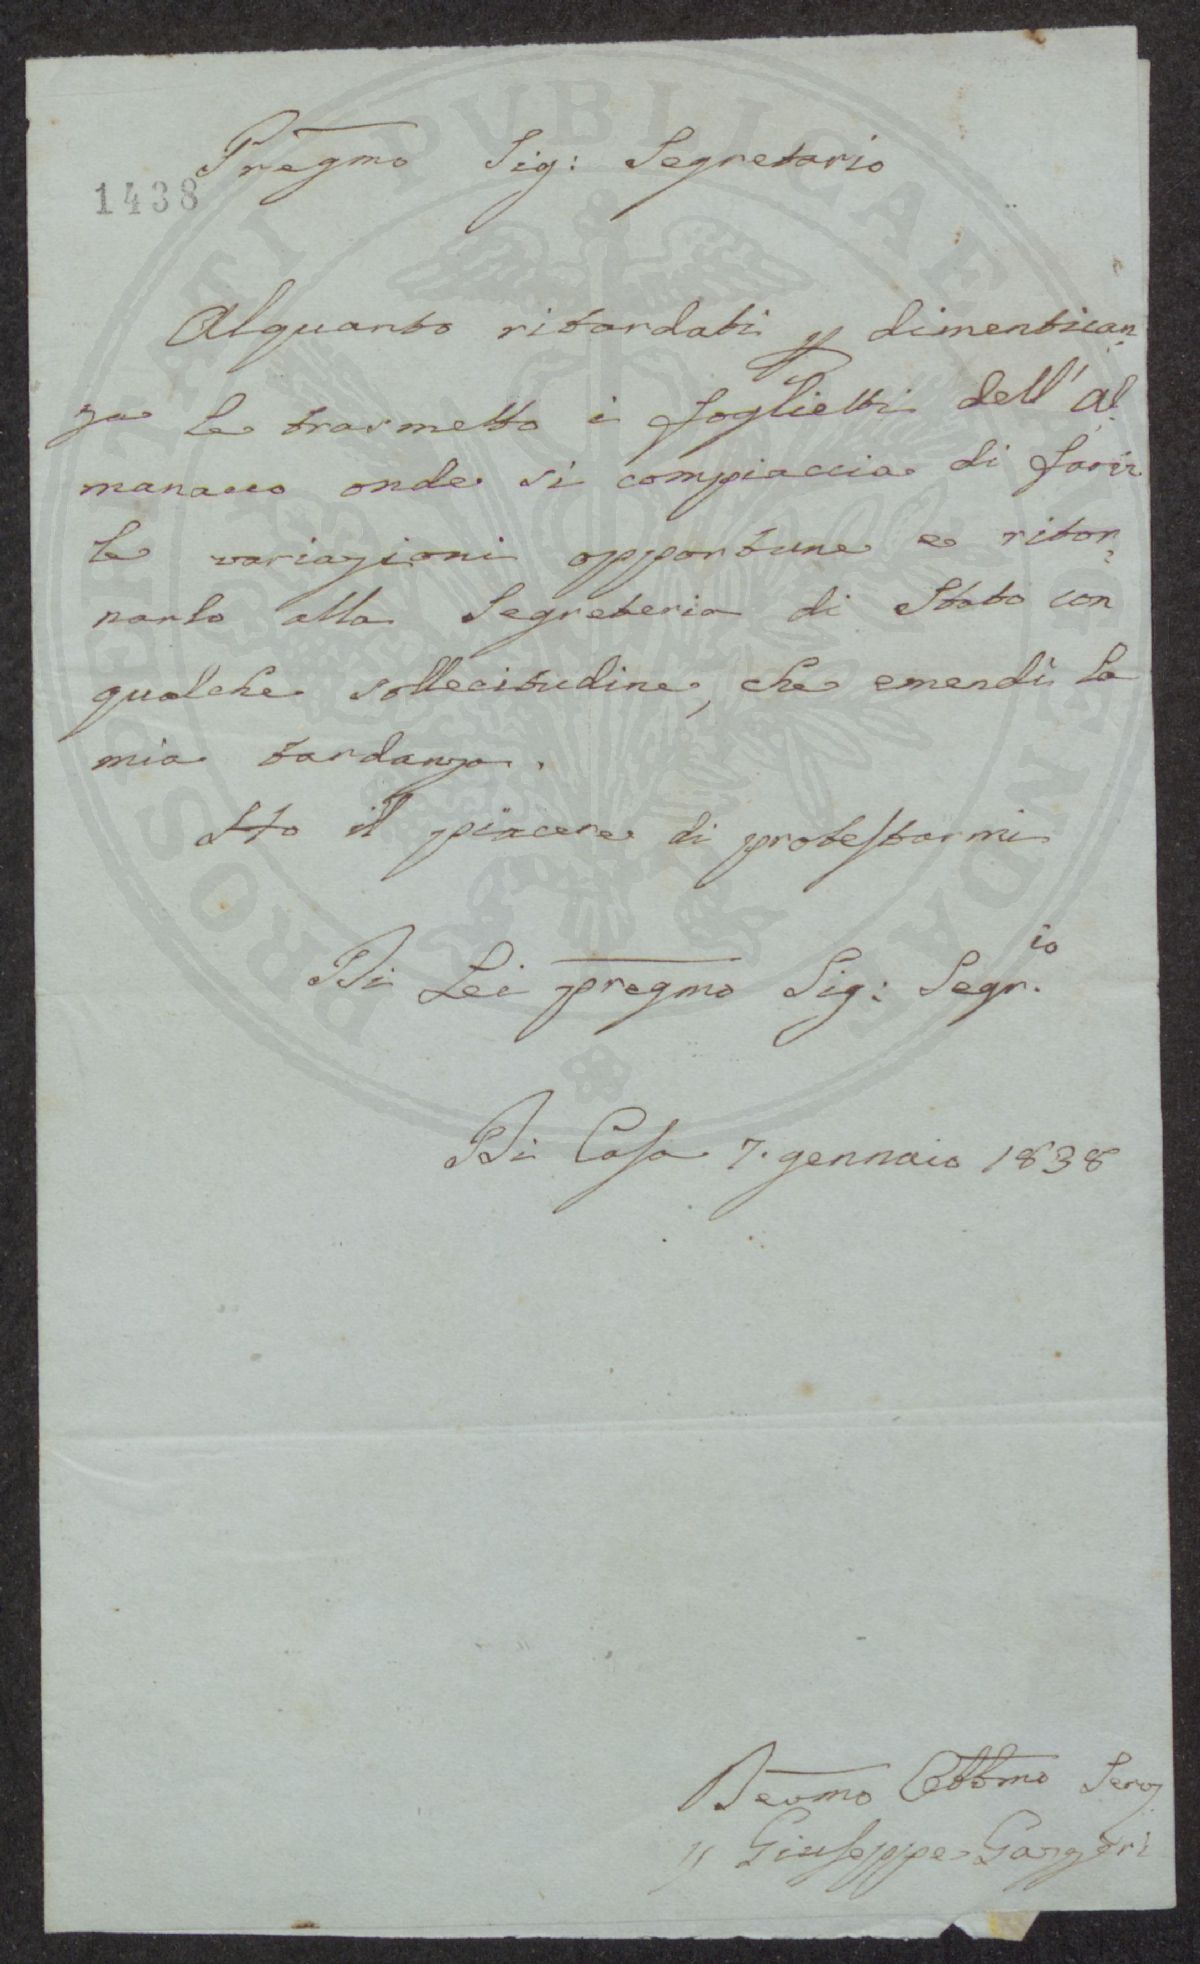 Pregmo Sig: Segretario
1438
Alquanto ritardati p dimentican
za le trasmetto i foglietti dell'Al
manacco onde si compiaccia di farvi
le variazioni opportune e ritor
narlo alla Segreteria di Stato con
qualche sollecitudine, che emendi la
mia tardanza.
Ho il piacere di protestarmi
Di Lei pregmo Sig: Segr.io
Di Casa 7. gennaio 1838
Devmo Obbmo Serv
Giuseppe
PROSPERITATI PVBLICAE AVGENDAE